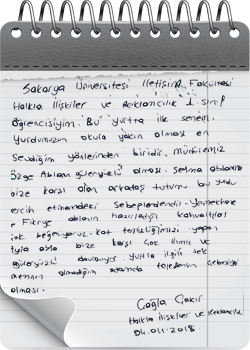 Sakarya Üniversitesi İletişim Fakültesi
Halkla İlişkiler ve Reklamcılık 1. sınıf
öğrencisiyim. Bu yurtta ilk senem.
Yurdumuzun okula yakın olması en
Sevdiğim yönlerinden biridir. Müdiremiz
Özge Ablanın güleryüzlü olması, Selma ablanın
bize karşı olan arkadaş tutumu bu yurdu
tercih etmemdeki Sebeplerdendir. Yemekhane
e Fikriye ablanın hazırladığı kahvaltıları
çok beğeniyoruz. Kat temizliğimizi yapan
abla bize karşı çok ilımlı ve
güleryüzlü davranıyor. Yurtla ilgili tek
olmadığım odamda telefonun çekmeyişi
olması.
Çağla Çakır
Halkla ilişkiler ve Reklamcılık
04.011.2018